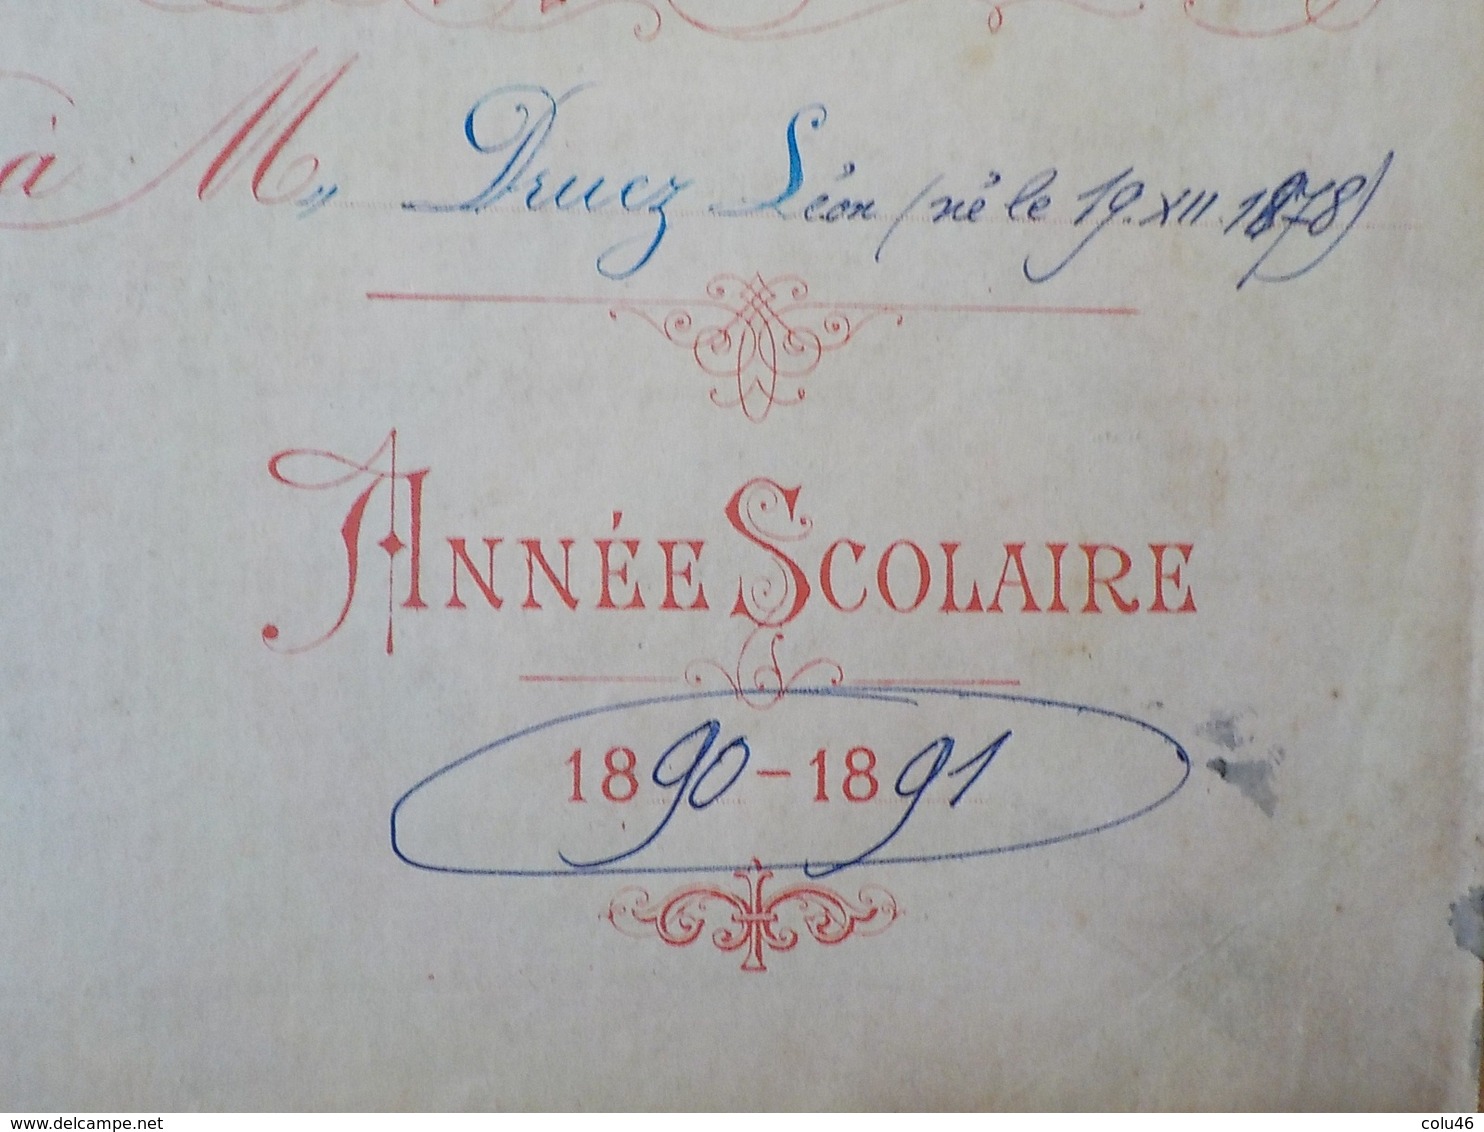 à M,, Drucz Léon (né le 19.XII.1878)
ANNÉE SCOLAIRE
1890-1891
delcampe.net
colu46